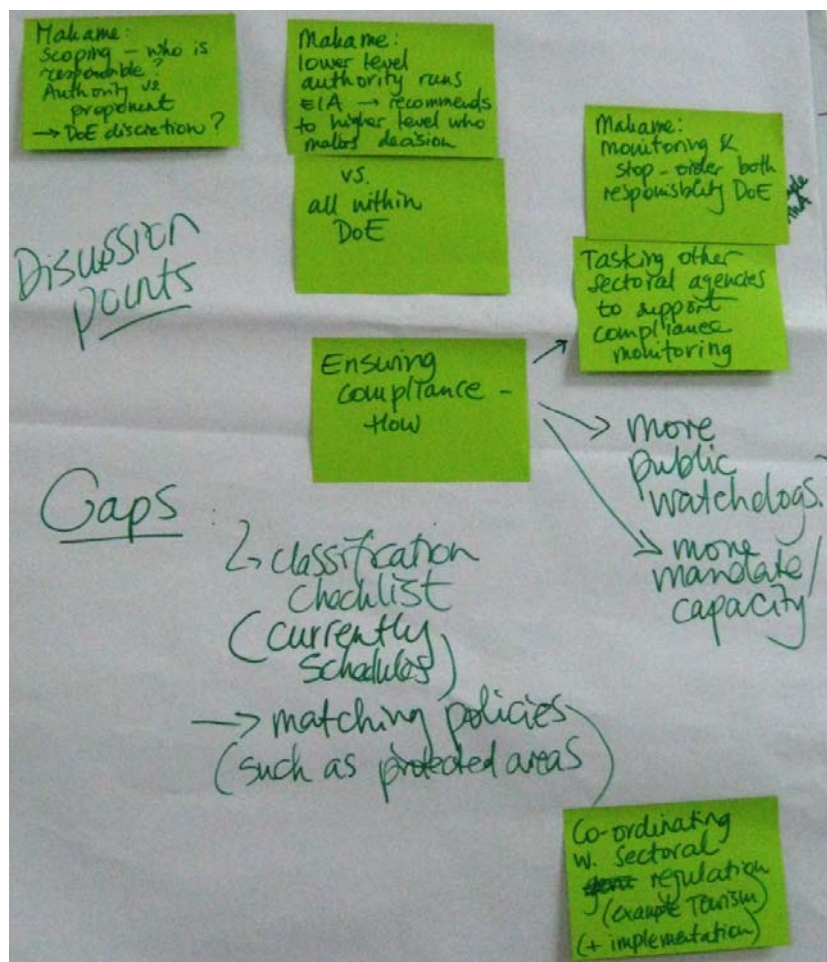 Makame:
scoping – who is
responsible?
Authority vs
proponent
→ DoE discretion?
Makame:
lower level
authority runs
EIA → recommends
to higher level who
makes decision
vs.
all within
DoE
Makame:
monitoring &
stop-order both
responsibility DoE
Tasking other
sectoral agencies
to support
compliance
monitoring
Discussion
points
Ensuring
compliance –
How
→ more
public
watchdogs.
→ more
mandate/
capacity
Gaps :
↳ classification
checklist
(currently
schedules)
→ matching policies
(such as protected areas)
Co-ordinating
w. sectoral
regulation
(example Tourism)
(+ implementation)